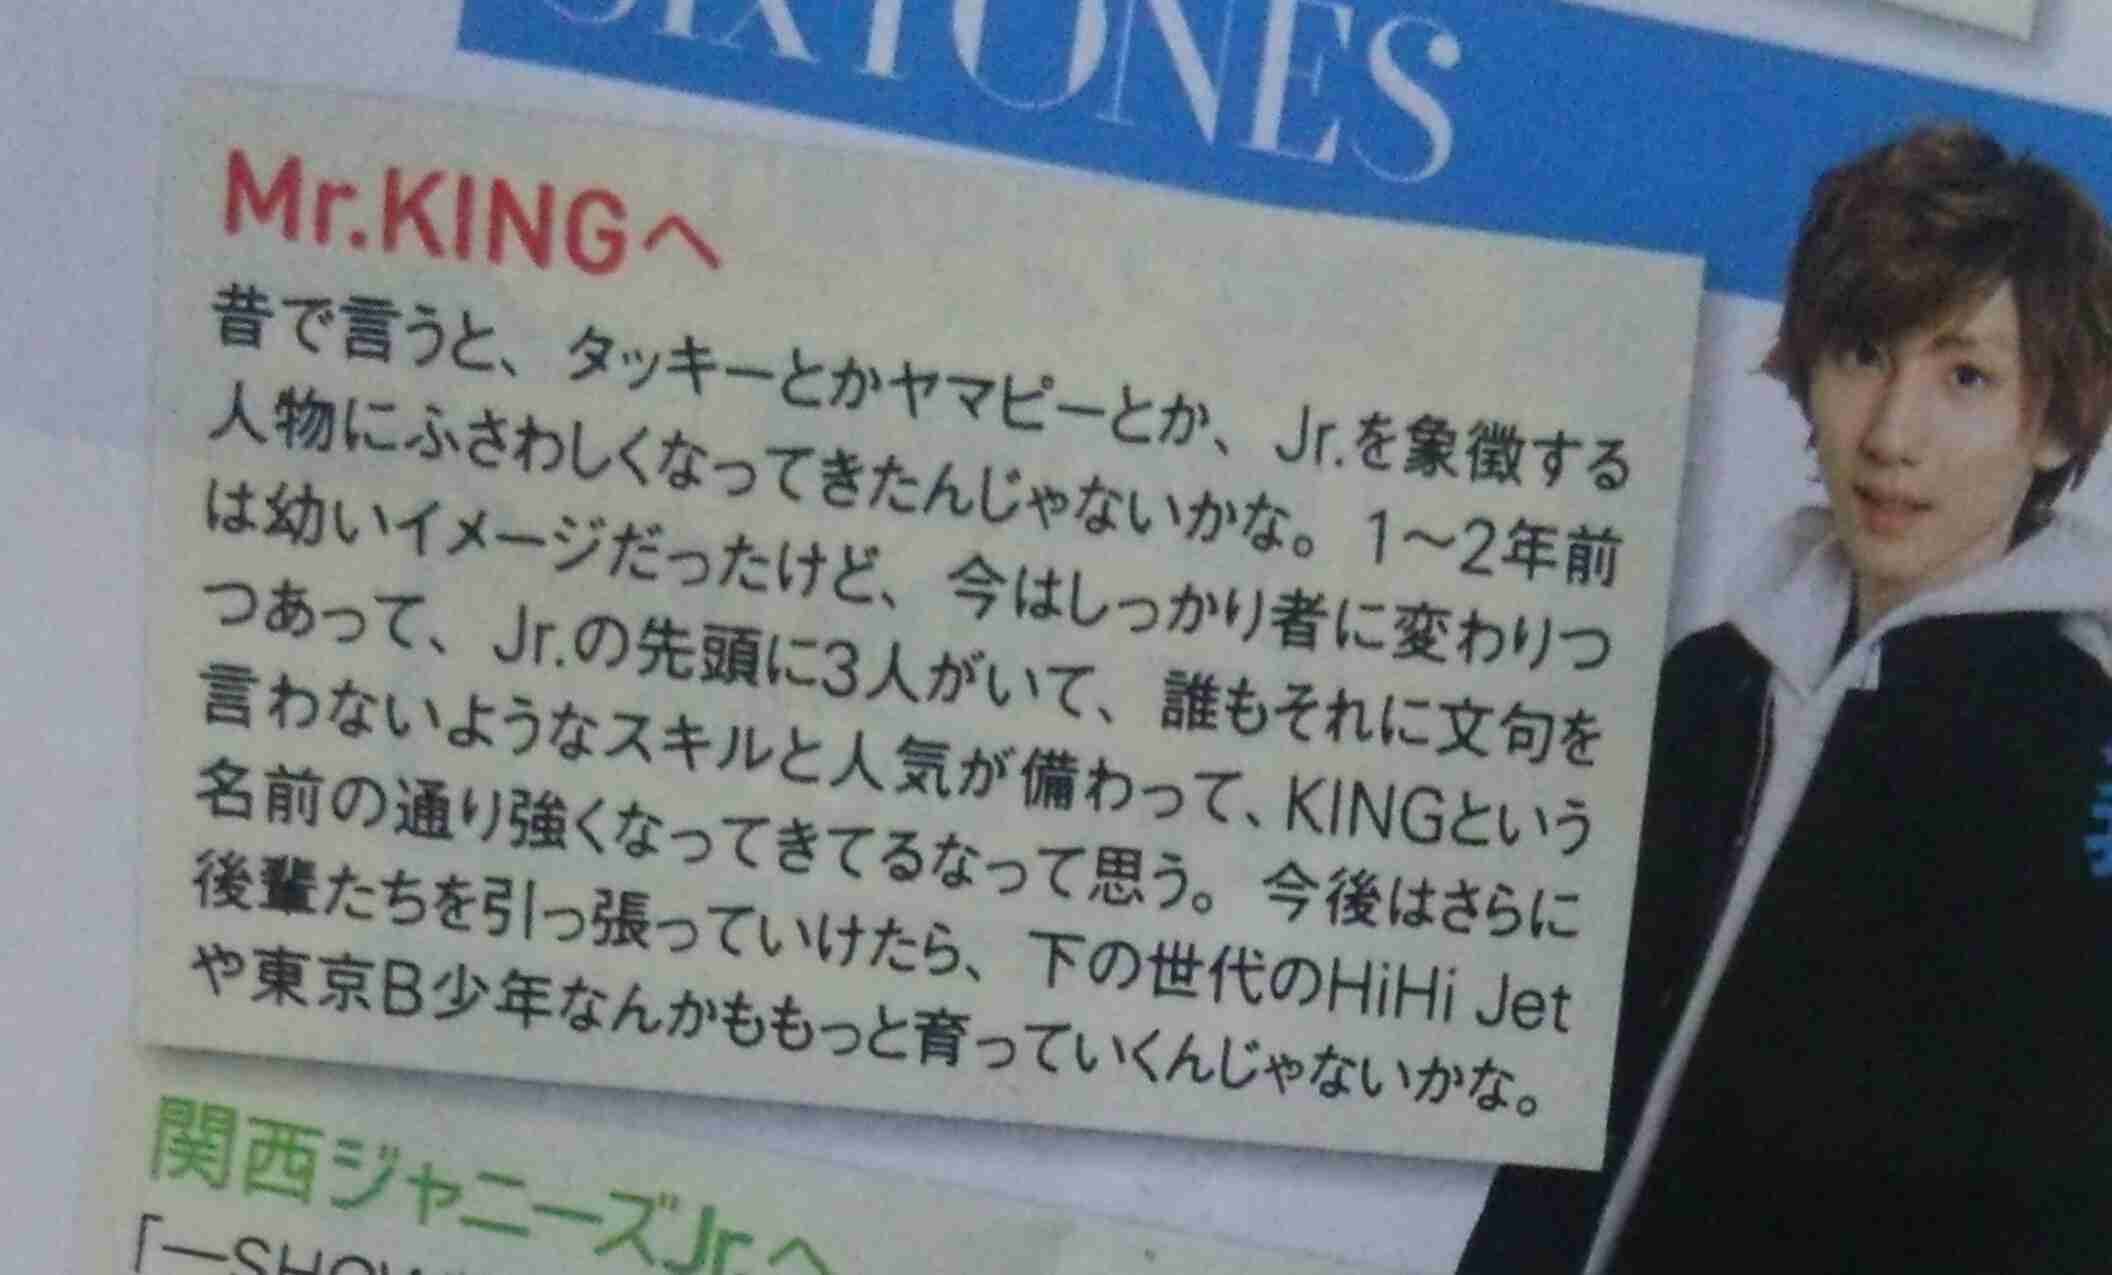 SIXTONES
Mr.KINGへ
昔で言うと、タッキーとかヤマピーとか、Jr.を象徴する
人物にふさわしくなってきたんじゃないかな。1～2年前
は幼いイメージだったけど、今はしっかり者に変わりつ
つあって、Jr.の先頭に3人がいて、誰もそれに文句を
言わないようなスキルと人気が備わって、KINGという
名前の通り強くなってきてるなって思う。今後はさらに
後輩たちを引っ張っていけたら、下の世代のHiHi Jet
や東京B少年なんかももっと育っていくんじゃないかな。
関西ジャニーズJr.へ
「―SHOW